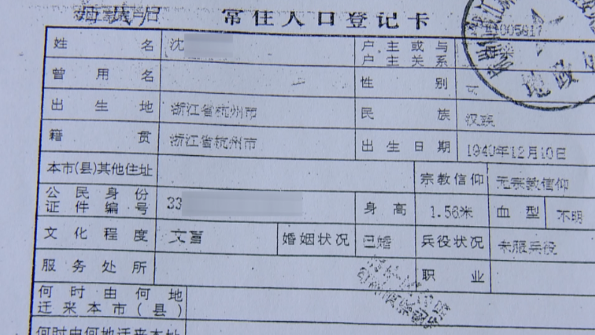 常住人口登记卡
005917
姓名 沈 户主或与户主关系
曾用名 性别 女
出生地 浙江省杭州市 民族 汉族
籍贯 浙江省杭州市 出生日期 1940年12月10日
本市(县)其他住址 宗教信仰 无宗教信仰
公民身份证件编号 33 身高 1.56米 血型 不明
文化程度 文盲 婚姻状况 已婚 兵役状况 未服兵役
服务处所 职业
何时由何地迁来本市(县)
何时由何地迁来本址